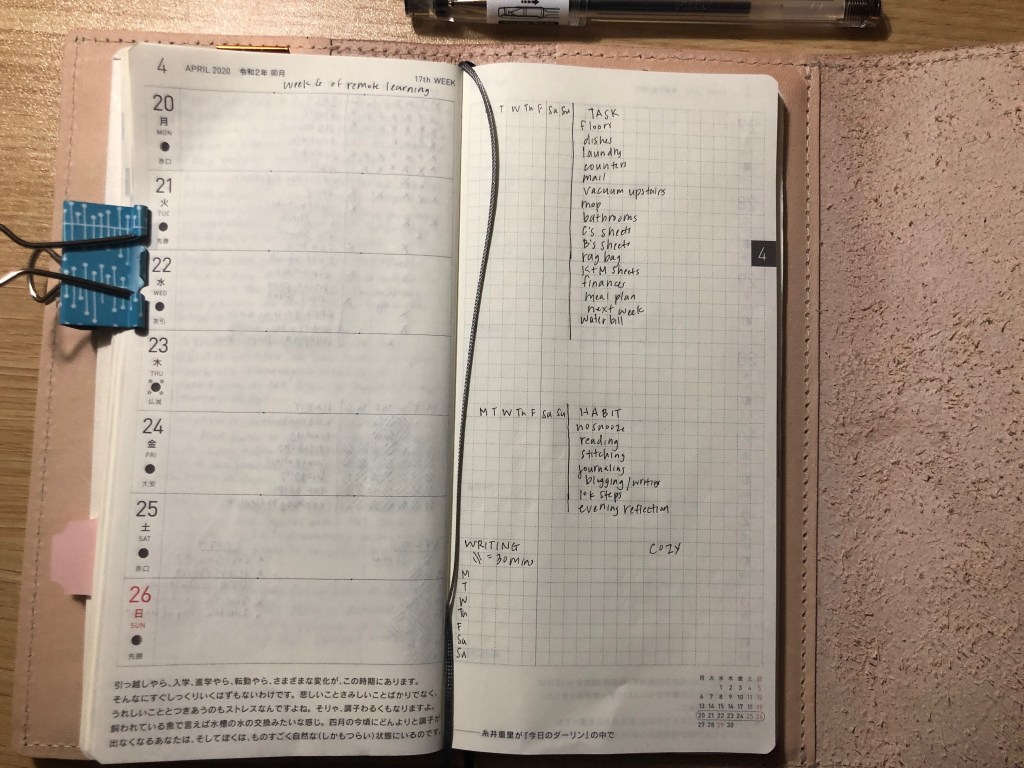 4 APRIL 2020 令和2年 卯月
17th WEEK
week 6 of remote learning
20
月
MON
赤口
21
火
TUE
先勝
22
水
WED
友引
23
木
THU
仏滅
24
金
FRI
大安
25
土
SAT
赤口
26
日
SUN
先勝
引っ越しやら、入学、進学やら、転勤やら、さまざまな変化が、この時期にあります。
そんなにすぐしっくりいくはずもないわけです。悲しいことさみしいことばかりでなく、
うれしいこととつきあうのもストレスなんですよね。そりゃ、調子わるくもなりますよ。
飼われている魚で言えば水槽の水の交換みたいな感じ。四月の今頃にどんよりと調子が
出なくなるあなたは、そしてぼくは、ものすごく自然な(しかもつらい)状態にいるのです。
T W Th F Sa Su TASK
floors
dishes
laundry
counters
mail
vacuum upstairs
mop
bathrooms
C's sheets
B's sheets
rag bag
K+M sheets
finances
meal plan
next week
water bill
4
M T W Th F Sa Su HABIT
no snooze
reading
stitching
journaling
blogging/writing
10k steps
evening reflection
WRITING
= 30 min
COZY
M
T
W
Th
F
Sa
Su
月 火 水 木 金 土 日
1 2 3 4 5
6 7 8 9 10 11 12
13 14 15 16 17 18 19
20 21 22 23 24 25 26
27 28 29 30
──糸井重里が『今日のダーリン』の中で